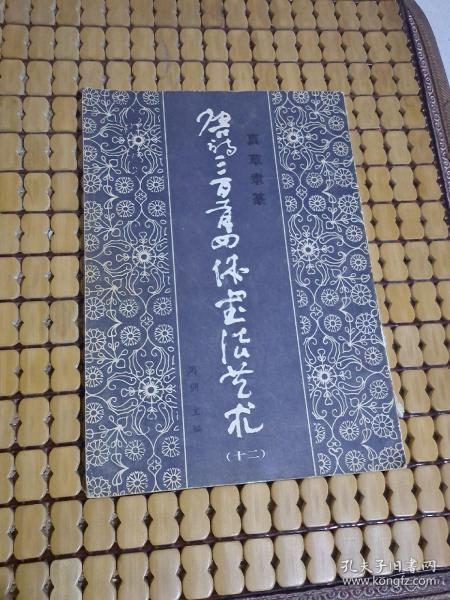 真草隶篆
唐诗三百首四体书法艺术
周倜 主编
（十二）
孔夫子旧书网
www.kongfz.com